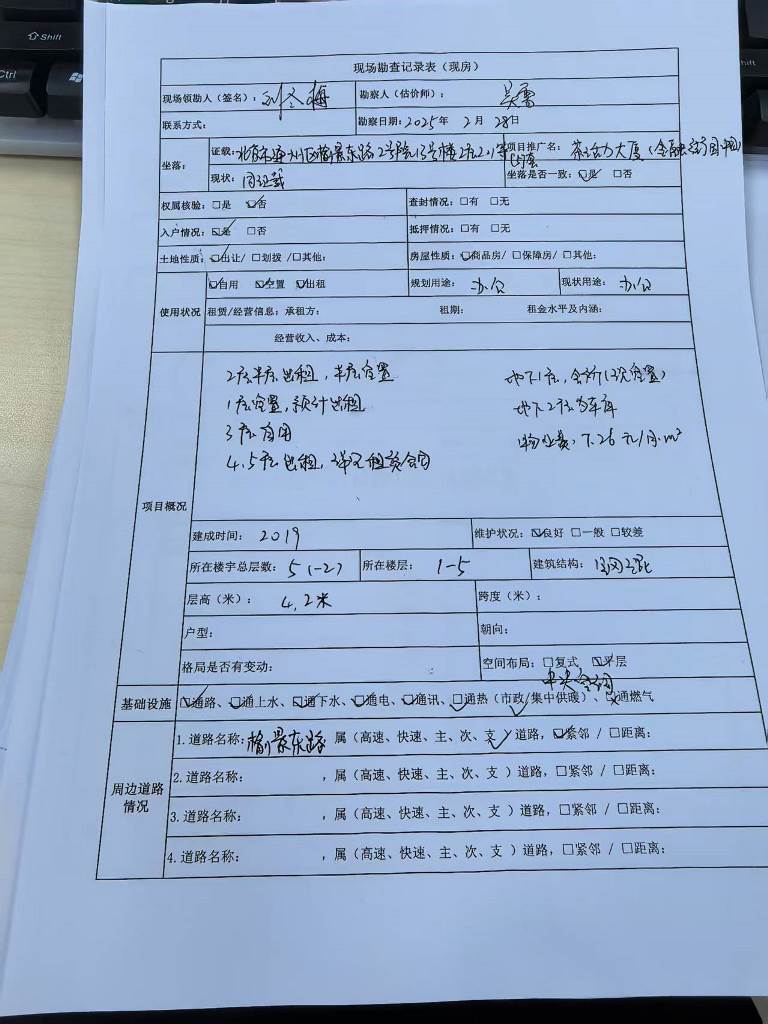 Shift
Ctrl
现场勘查记录表（现房）
现场领勘人（签名）：刘冬梅 勘察人（估价师）：吴雷
联系方式： 勘察日期：2025年 2月 28日
坐落： 证载：北京市通州区榆景东路2号院13号楼2层201等 项目推广名：
现状：同证载 坐落是否一致：☑是 □否
权属核验：□是 ☑否 查封情况：□有 □无
入户情况：☑是 □否 抵押情况：□有 □无
土地性质：☑出让/ □划拨 /□其他： 房屋性质：☑商品房/ □保障房/ □其他：
使用状况 ☑自用 ☑空置 ☑出租 规划用途：办公 现状用途：办公
租赁/经营信息：承租方： 租期： 租金水平及内涵：
经营收入、成本：
项目概况
2层半层出租，半层空置 地下1层，会所（1次空置）
1层空置，预计出租 地下2层为车库
3层自用 物业费：7.26元/月·m²
4.5层出租，详见租赁合同
建成时间：2019 维护状况：☑良好 □一般 □较差
所在楼宇总层数：5（-2） 所在楼层：1-5 建筑结构：
层高（米）：4.2米 跨度（米）：
户型： 朝向：
格局是否有变动： 空间布局：□复式 ☑平层
中央空调
基础设施 ☑通路、☑通上水、☑通下水、☑通电、☑通讯、☑通热（市政/集中供暖）、☒通燃气
周边道路情况
1.道路名称：榆景东路 属（高速、快速、主、次、支✓）道路，☑紧邻 / □距离：
2.道路名称： ，属（高速、快速、主、次、支 ）道路，□紧邻 / □距离：
3.道路名称： ，属（高速、快速、主、次、支 ）道路，□紧邻 / □距离：
4.道路名称： ，属（高速、快速、主、次、支 ）道路，□紧邻 / □距离：